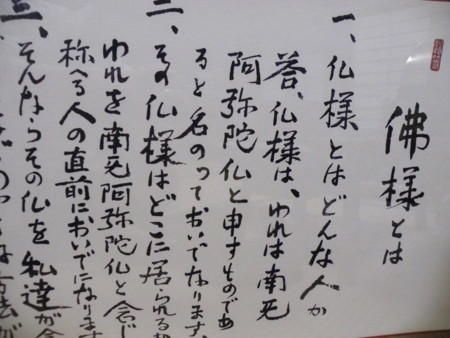 佛様とは
一、仏様とはどんな人か
答、仏様は、われは南无
阿弥陀仏と申すものであ
ると名のっておいでなります。
二、その仏様はどこに居られるか
われを南无阿弥陀仏と念じ
称へる人の直前においでになります
三、そんならその仏を私達が念